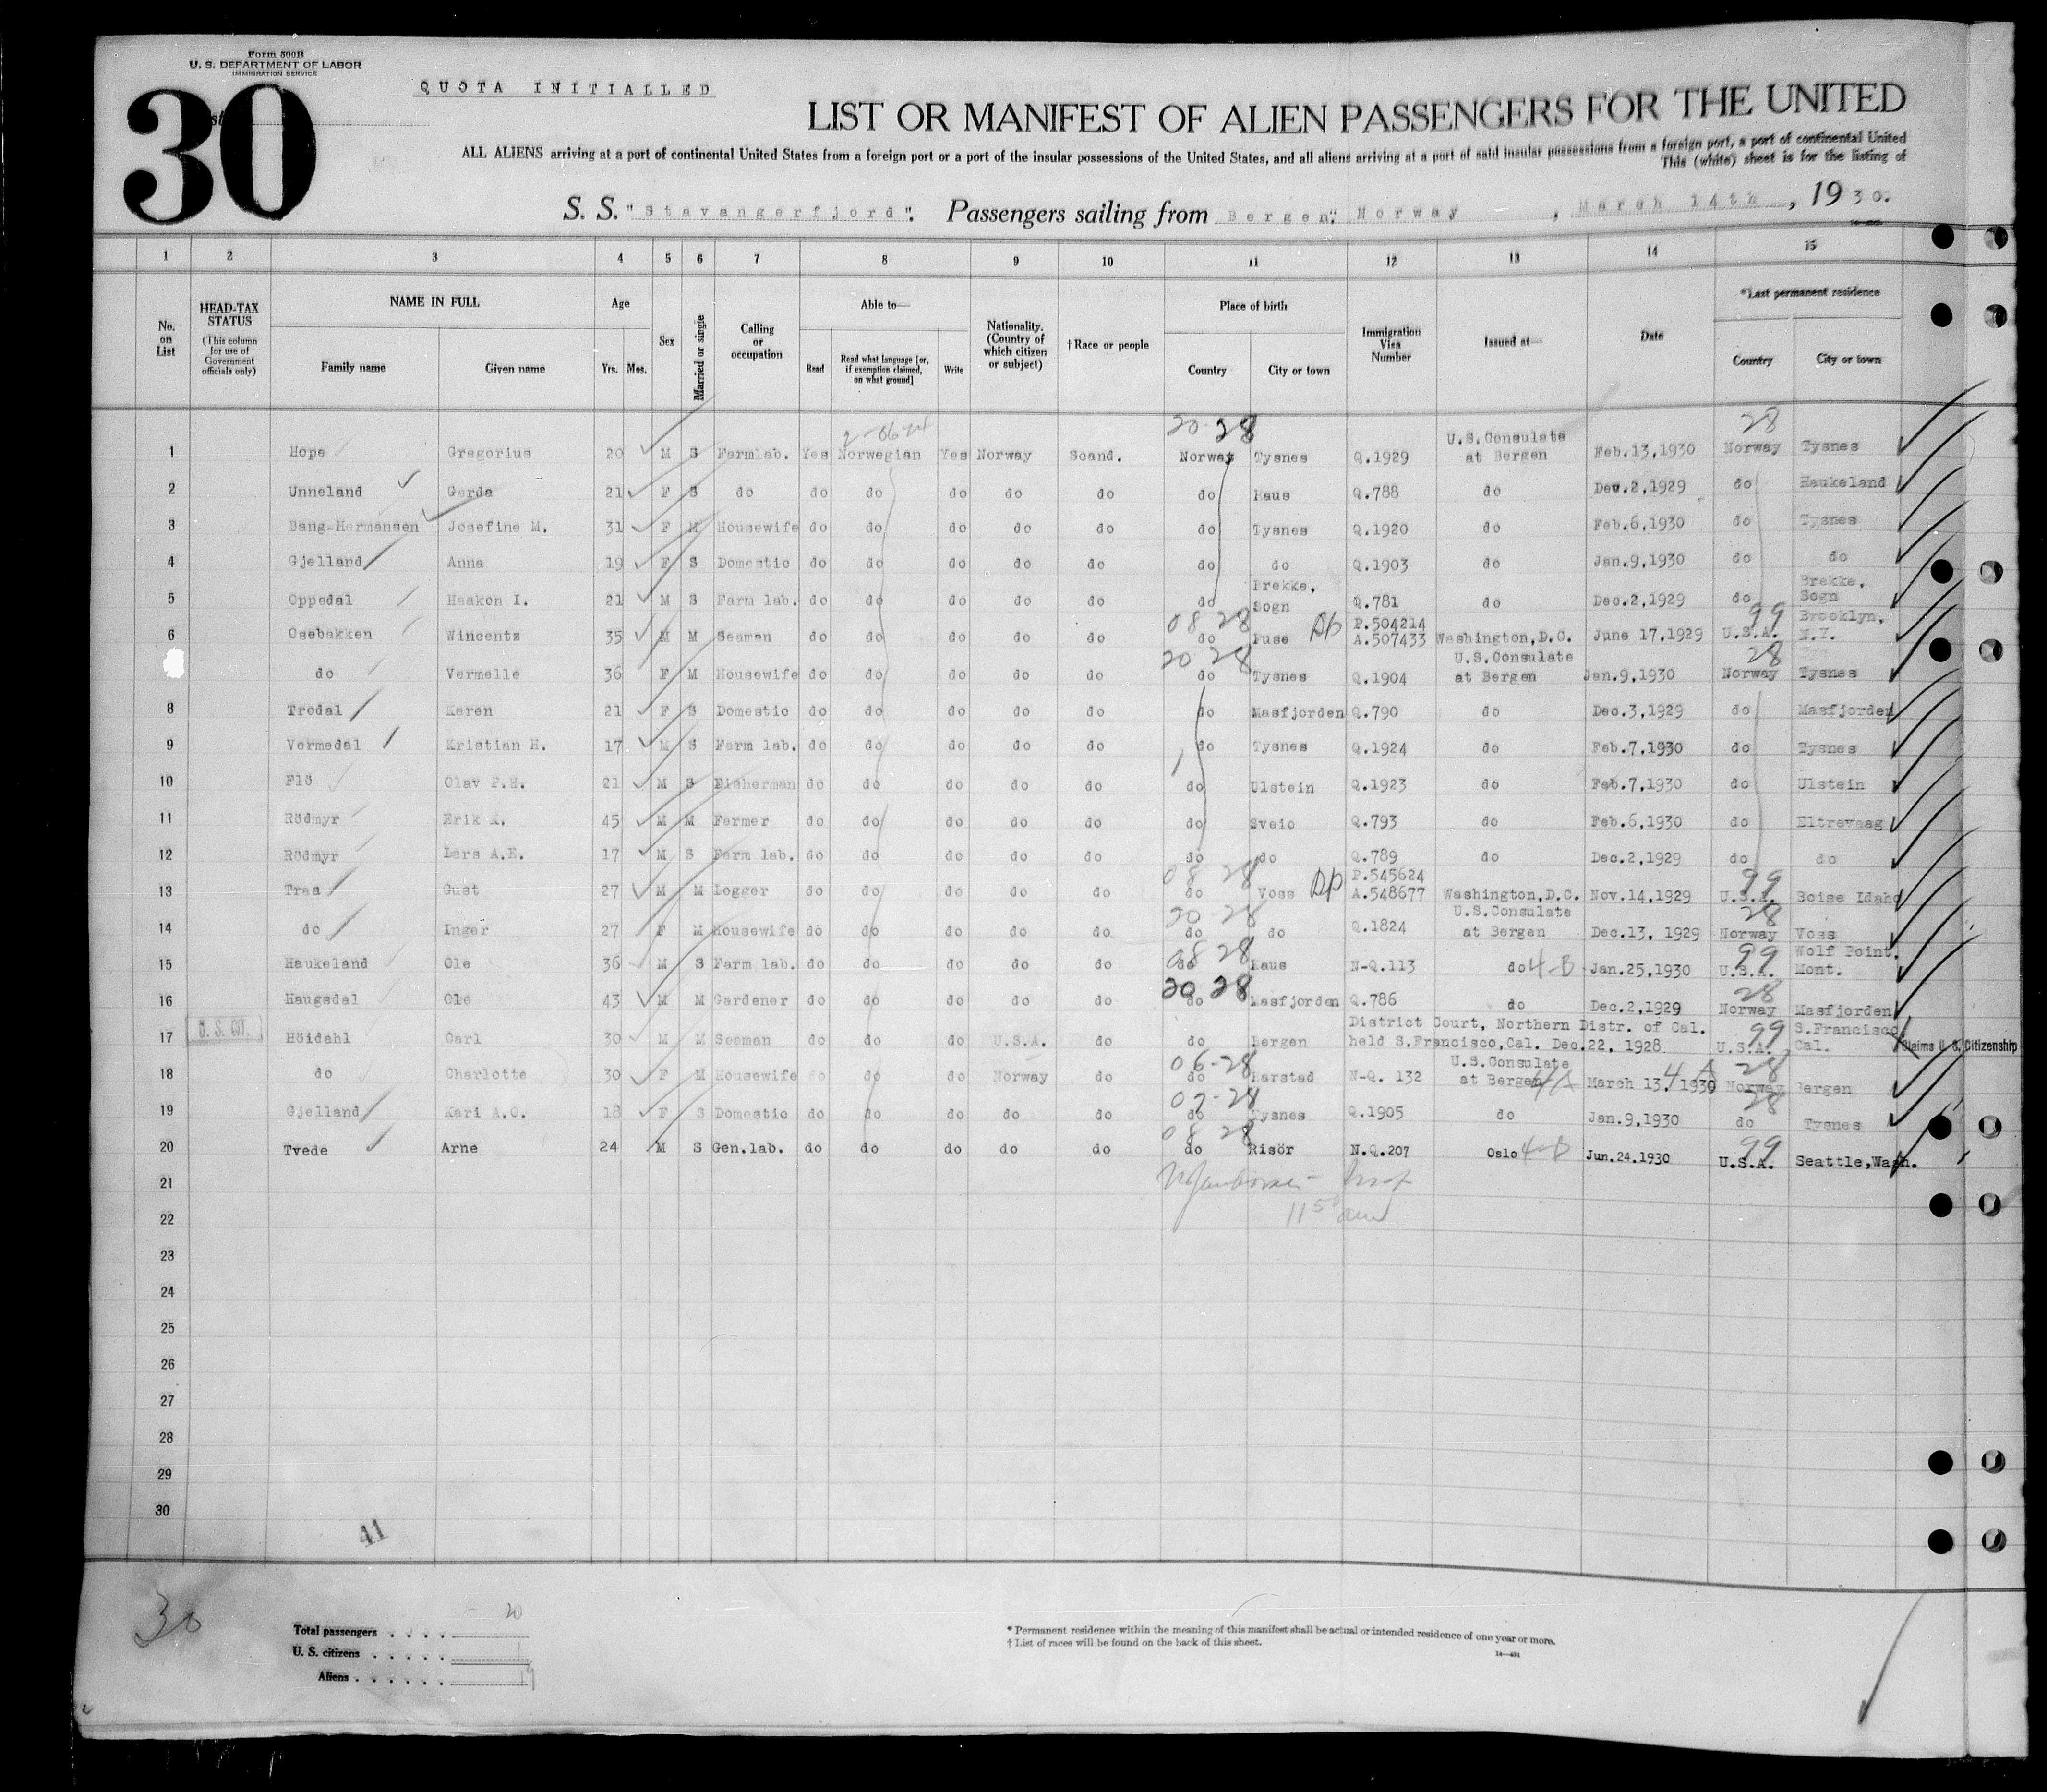 Form 500B
U. S. DEPARTMENT OF LABOR
IMMIGRATION SERVICE
QUOTA INITIALLED
30
LIST OR MANIFEST OF ALIEN PASSENGERS FOR THE UNITED
ALL ALIENS arriving at a port of continental United States from a foreign port or a port of the insular possessions of the United States, and all aliens arriving at a port of said insular possessions from a foreign port, a port of continental United
This (white) sheet is for the listing of
S. S. "Stavangerfjord". Passengers sailing from Bergen, Norway, March 14th, 1930.
1 2 3 4 5 6 7 8 9 10 11 12 13 14 15
No. on List
HEAD-TAX STATUS (This column for use of Government officials only)
NAME IN FULL Family name Given name
Age Yrs. Mos.
Sex
Married or single
Calling or occupation
Able to— Read Read what language [or, if exemption claimed, on what ground] Write
Nationality. (Country of which citizen or subject)
†Race or people
Place of birth Country City or town
Immigration Visa Number
Issued at—
Date
*Last permanent residence Country City or town
20-28 28
1 Hope Gregorius 20 M S Farmlab. Yes Norwegian Yes Norway Scand. Norway Tysnes Q.1929 U.S.Consulate at Bergen Feb.13,1930 Norway Tysnes
2 Unneland Gerda 21 F S do do do do do do do Haus Q.788 do Dev.2,1929 do Haukeland
3 Bang-Hermansen Josefine M. 31 F M Housewife do do do do do do Tysnes Q.1920 do Feb.6,1930 do Tysnes
4 Gjelland Anna 19 F S Domestic do do do do do do do Q.1903 do Jan.9,1930 do do
5 Oppedal Haakon I. 21 M S Farm lab. do do do do do do Brekke, Sogn Q.781 do Dec.2,1929 do Brekke, Sogn
08 28 99
6 Osebakken Wincentz 35 M M Seaman do do do do do do Fuse P.504214 A.507433 Washington,D.C. June 17,1929 U.S.A. Brooklyn, N.Y.
20 28 28
do Vermelle 36 F M Housewife do do do do do do Tysnes Q.1904 U.S.Consulate at Bergen Jan.9,1930 Norway Tysnes
8 Trodal Karen 21 F S Domestic do do do do do do Masfjorden Q.790 do Dec.3,1929 do Masfjorden
9 Vermedal Kristian H. 17 M S Farm lab. do do do do do do Tysnes Q.1924 do Feb.7,1930 do Tysnes
10 Flö Olav P.H. 21 M S Fisherman do do do do do do Ulstein Q.1923 do Feb.7,1930 do Ulstein
11 Rödmyr Erik 45 M M Farmer do do do do do do Sveio Q.793 do Feb.6,1930 do Eltrevaag
12 Rödmyr Lars A.E. 17 M S Farm lab. do do do do do do do Q.789 do Dec.2,1929 do do
08 28 99
13 Traa Gust 27 M M Logger do do do do do do Voss P.545624 A.548677 Washington,D.C. Nov.14,1929 U.S.A. Boise Idaho
20-28 28
14 do Inger 27 F M Housewife do do do do do do do Q.1824 U.S.Consulate at Bergen Dec.13, 1929 Norway Voss
08 28 99
15 Haukeland Ole 36 M S Farm lab. do do do do do do Haus N-Q.113 do 4-B Jan.25,1930 U.S.A. Wolf Point, Mont.
20 28 28
16 Haugsdal Ole 43 M M Gardener do do do do do do Masfjorden Q.786 do Dec.2,1929 Norway Masfjorden
U. S. CIT.
17 Höidahl Carl 30 M M Seaman do do do U.S.A. do do Bergen District Court, Northern Distr. of Cal. held S.Francisco,Cal. Dec.22, 1928 99 U.S.A. S.Francisco, Cal. Claims U. S. Citizenship
06-28 28
18 do Charlotte 30 F M Housewife do do do Norway do do Harstad N-Q. 132 U.S.Consulate at Bergen 4A March 13, 1930 Norway Bergen
07-28 28
19 Gjelland Kari A.O. 18 F S Domestic do do do do do do Tysnes Q.1905 do Jan.9,1930 do Tysnes
08 28 99
20 Tvede Arne 24 M S Gen.lab. do do do do do do Risör N.Q.207 Oslo 4-B Jun.24.1930 U.S.A. Seattle,Wash.
21
22
23
24
25
26
27
28
29
30
41
30
Total passengers . . . . 20
U. S. citizens . . . . . 1
Aliens . . . . . . 19
* Permanent residence within the meaning of this manifest shall be actual or intended residence of one year or more.
† List of races will be found on the back of this sheet.